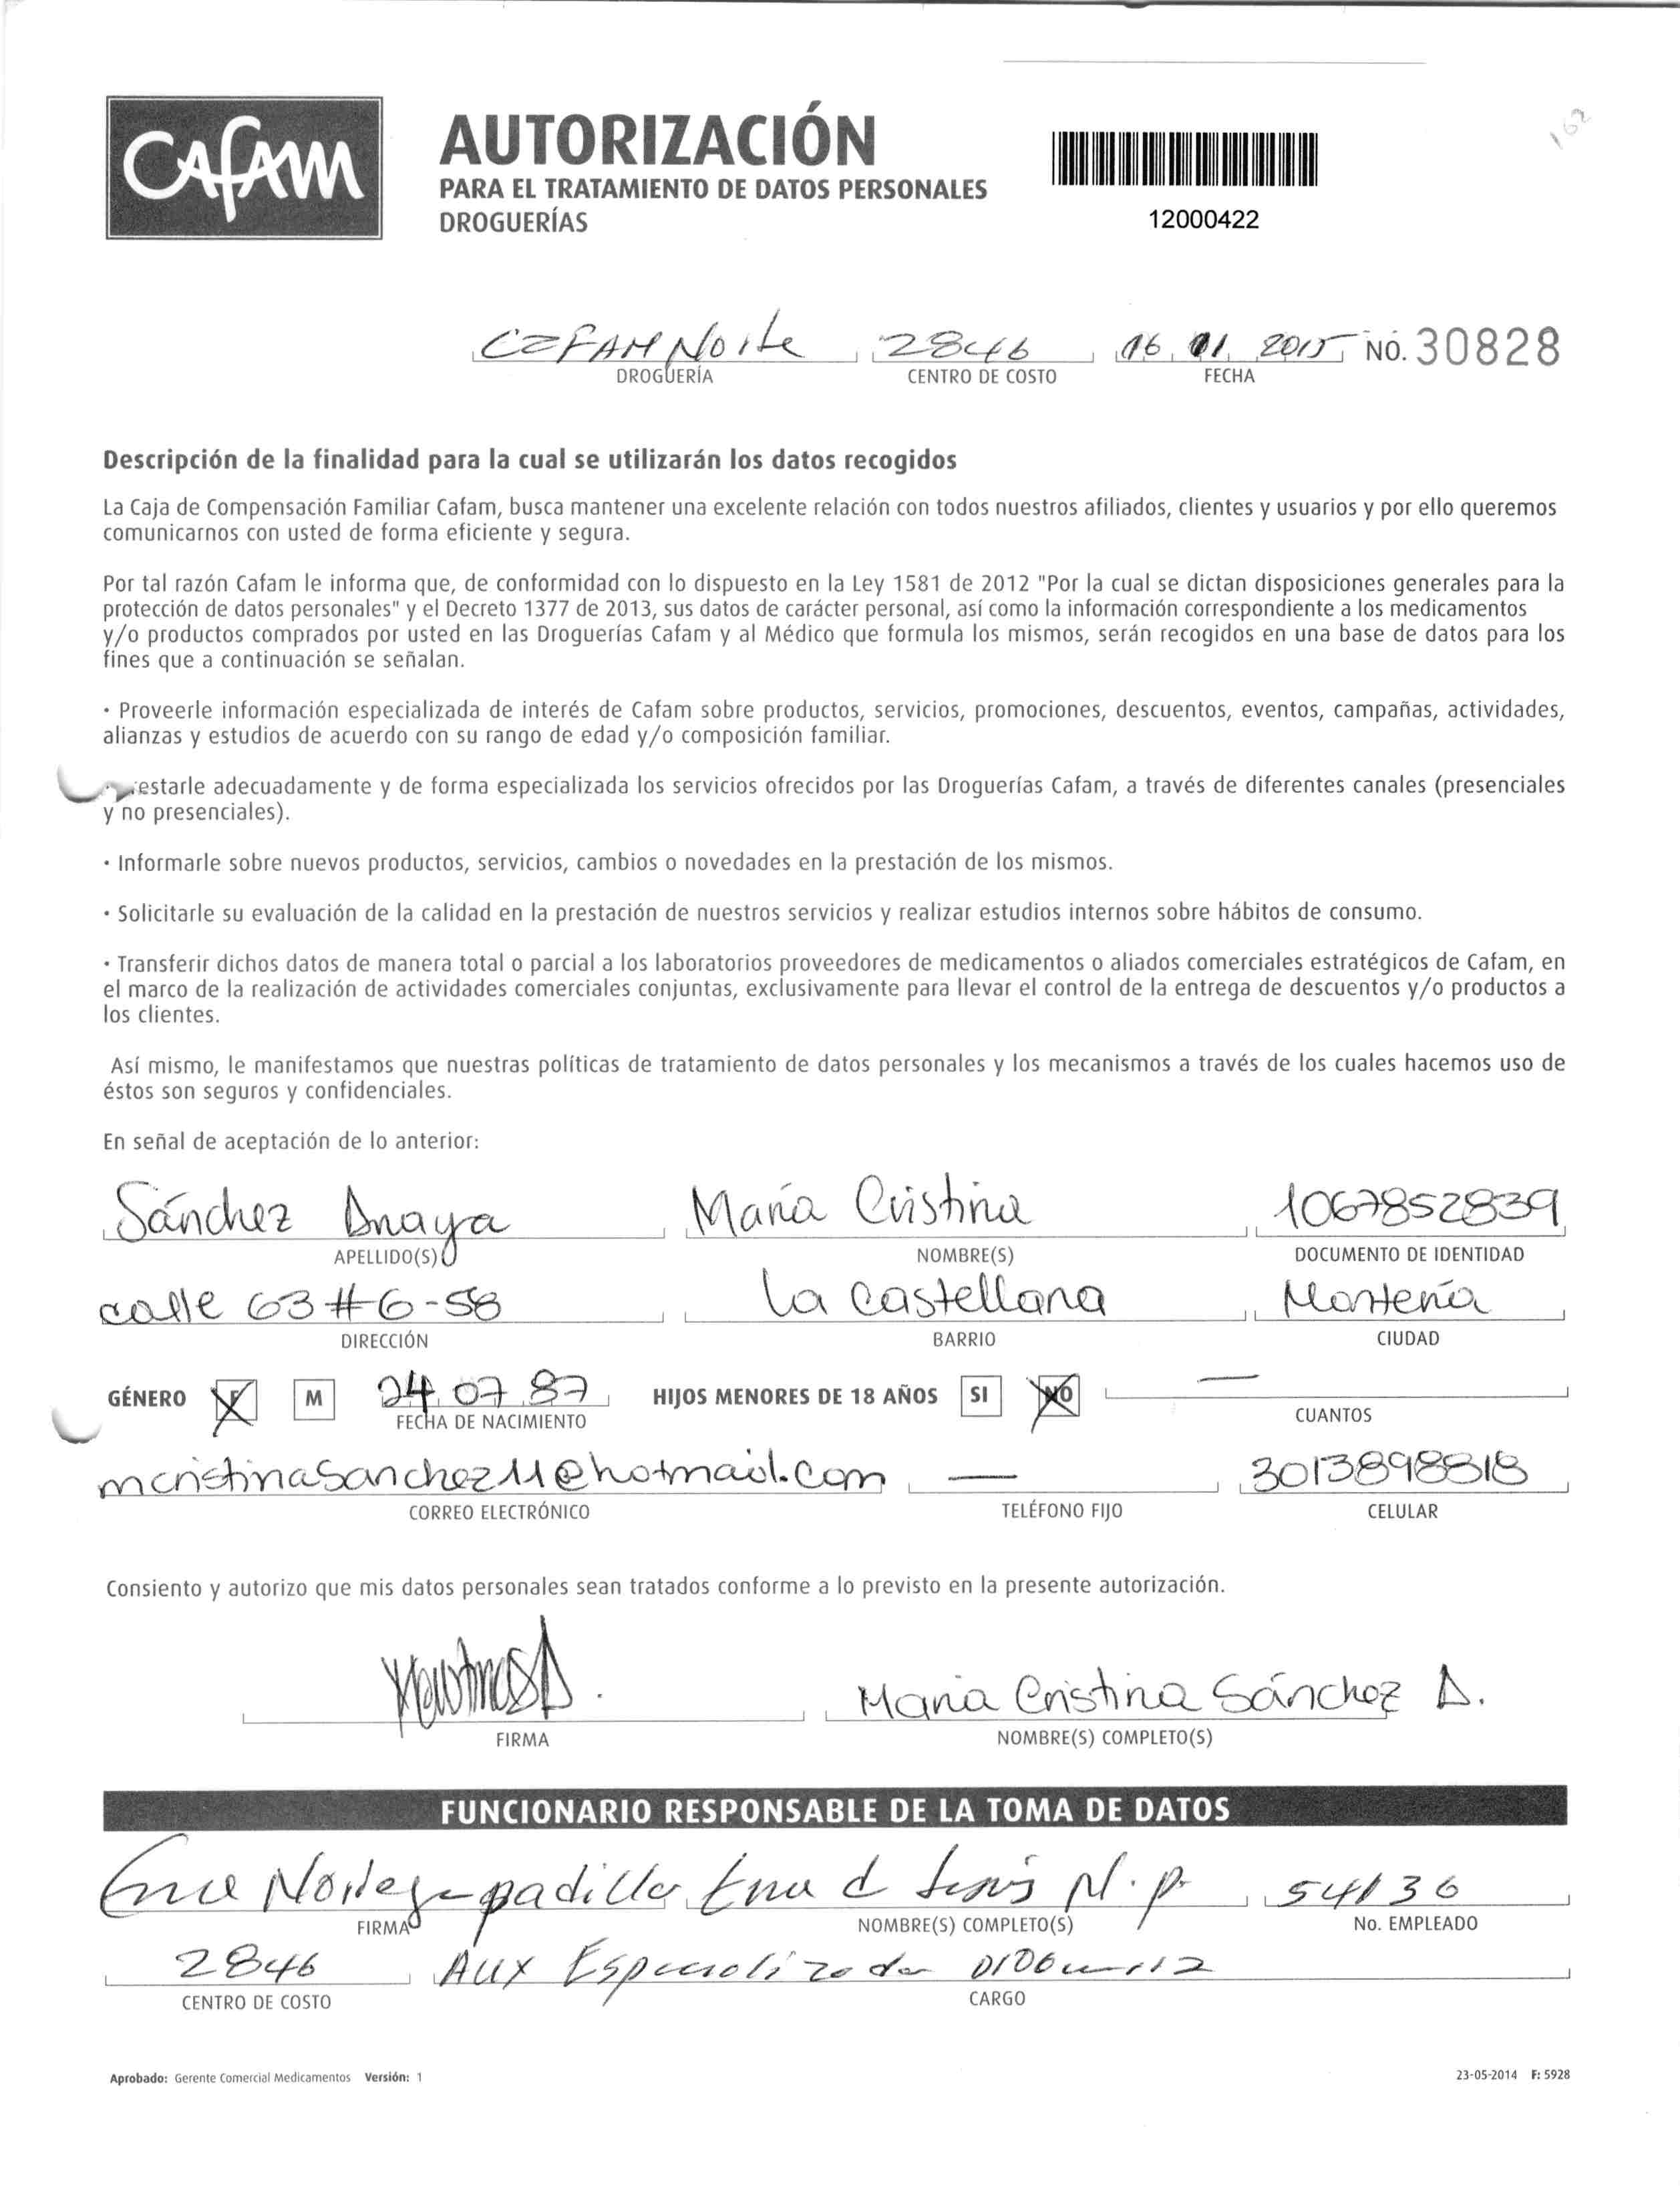 CAFAM
AUTORIZACIÓN
PARA EL TRATAMIENTO DE DATOS PERSONALES
DROGUERÍAS
12000422
162
CAFAM Norte 2846 16 01 2015 NO. 30828
DROGUERÍA CENTRO DE COSTO FECHA
Descripción de la finalidad para la cual se utilizarán los datos recogidos
La Caja de Compensación Familiar Cafam, busca mantener una excelente relación con todos nuestros afiliados, clientes y usuarios y por ello queremos
comunicarnos con usted de forma eficiente y segura.
Por tal razón Cafam le informa que, de conformidad con lo dispuesto en la Ley 1581 de 2012 "Por la cual se dictan disposiciones generales para la
protección de datos personales" y el Decreto 1377 de 2013, sus datos de carácter personal, así como la información correspondiente a los medicamentos
y/o productos comprados por usted en las Droguerías Cafam y al Médico que formula los mismos, serán recogidos en una base de datos para los
fines que a continuación se señalan.
· Proveerle información especializada de interés de Cafam sobre productos, servicios, promociones, descuentos, eventos, campañas, actividades,
alianzas y estudios de acuerdo con su rango de edad y/o composición familiar.
estarle adecuadamente y de forma especializada los servicios ofrecidos por las Droguerías Cafam, a través de diferentes canales (presenciales
y no presenciales).
· Informarle sobre nuevos productos, servicios, cambios o novedades en la prestación de los mismos.
· Solicitarle su evaluación de la calidad en la prestación de nuestros servicios y realizar estudios internos sobre hábitos de consumo.
· Transferir dichos datos de manera total o parcial a los laboratorios proveedores de medicamentos o aliados comerciales estratégicos de Cafam, en
el marco de la realización de actividades comerciales conjuntas, exclusivamente para llevar el control de la entrega de descuentos y/o productos a
los clientes.
Así mismo, le manifestamos que nuestras políticas de tratamiento de datos personales y los mecanismos a través de los cuales hacemos uso de
éstos son seguros y confidenciales.
En señal de aceptación de lo anterior:
Sánchez Anaya María Cristina 1067852839
APELLIDO(S) NOMBRE(S) DOCUMENTO DE IDENTIDAD
calle 63 # 6-58 la castellana Montería
DIRECCIÓN BARRIO CIUDAD
GÉNERO F M 24 07 87 HIJOS MENORES DE 18 AÑOS SI NO —
FECHA DE NACIMIENTO CUANTOS
mcristinasanchez11@hotmail.com — 3013898818
CORREO ELECTRÓNICO TELÉFONO FIJO CELULAR
Consiento y autorizo que mis datos personales sean tratados conforme a lo previsto en la presente autorización.
María Cristina Sánchez A.
FIRMA NOMBRE(S) COMPLETO(S)
FUNCIONARIO RESPONSABLE DE LA TOMA DE DATOS
padilla N.p 54136
FIRMA NOMBRE(S) COMPLETO(S) No. EMPLEADO
2846 Aux Especializada
CENTRO DE COSTO CARGO
Aprobado: Gerente Comercial Medicamentos Versión: 1 23-05-2014 F: 5928